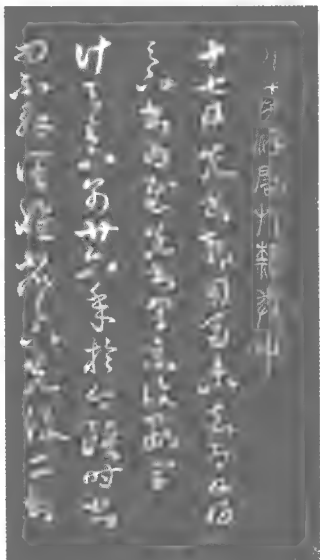 十七日先書郗司馬未去即日得
足下書為慰先書以具示復數字
計與足下別廿六年於今雖時書
問不解闊懷省足下先後二書